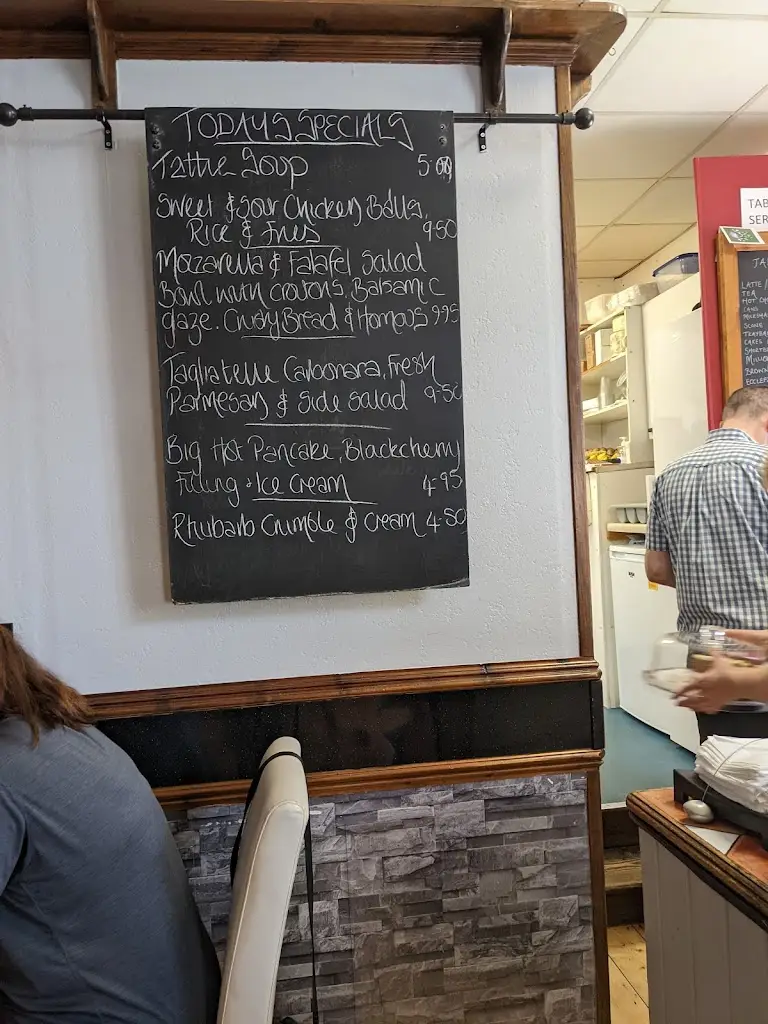 TODAYS SPECIALS
Tattie Soup 5.00
Sweet & Sour Chicken Balls,
Rice & Fries 9.50
Mozzarella & Falafel Salad
Bowl with croutons, Balsamic
glaze. Crusty Bread & Homous 9.95
Tagliatelle Carbonara, Fresh
Parmesan & Side Salad 9.50
Big Hot Pancake, Blackcherry
Filling & Ice Cream 4.95
Rhubarb Crumble & Cream 4.50
TAB
SER
LATTE /
TEA
HOT CH
SCONE
TRAYBA
CAKES
SHORTB
BROWN
ECCLES